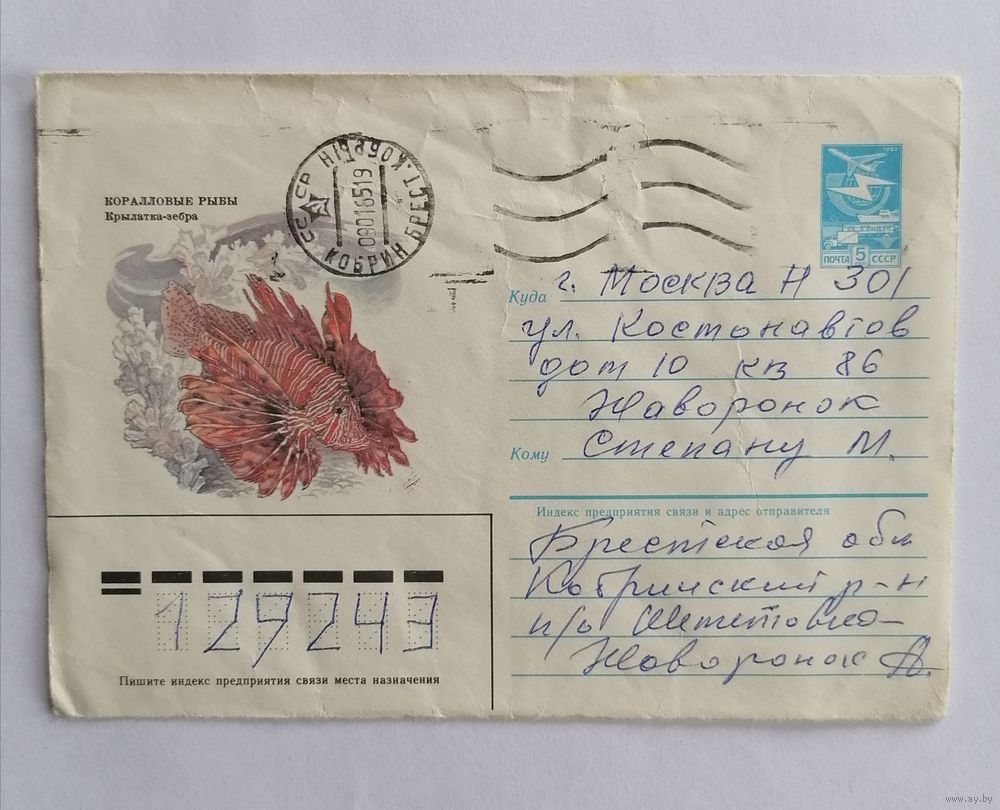 КОРАЛЛОВЫЕ РЫБЫ
Крылатка-зебра
СССР КОБРЫН БРЕСТ.
КОБРИН
09018519
1982
ПОЧТА 5 СССР
Куда г. Москва Н 301
ул. Костонавтов
дом 10 кв 86
Жаворонок
Кому Степану М.
Индекс предприятия связи и адрес отправителя
Брестская обл
Кобринский р-н
п/о
Жаворонок А.
129243
Пишите индекс предприятия связи места назначения
www.ay.by